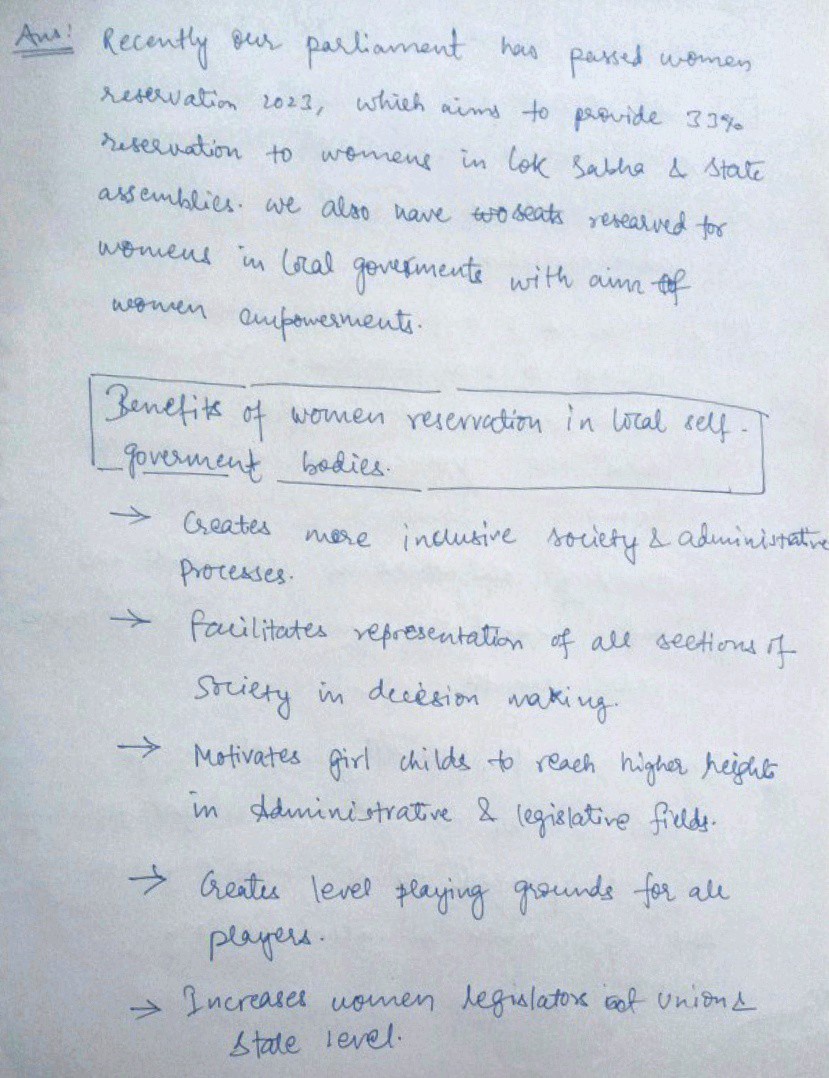 Ans: Recently our parliament has passed women
reservation 2023, which aims to provide 33%
reservation to womens in Lok Sabha & State
assemblies. we also have seats researved for
womens in local goverments with aim of
women empowerments.
Benefits of women reservation in local self-
goverment bodies.
→ Creates more inclusive society & administrative
processes.
→ Facilitates representation of all sections of
society in decision making.
→ Motivates girl childs to reach higher heights
in Administrative & legislative fields.
→ Creates level playing grounds for all
players.
→ Increases women legislators at Union &
State level.